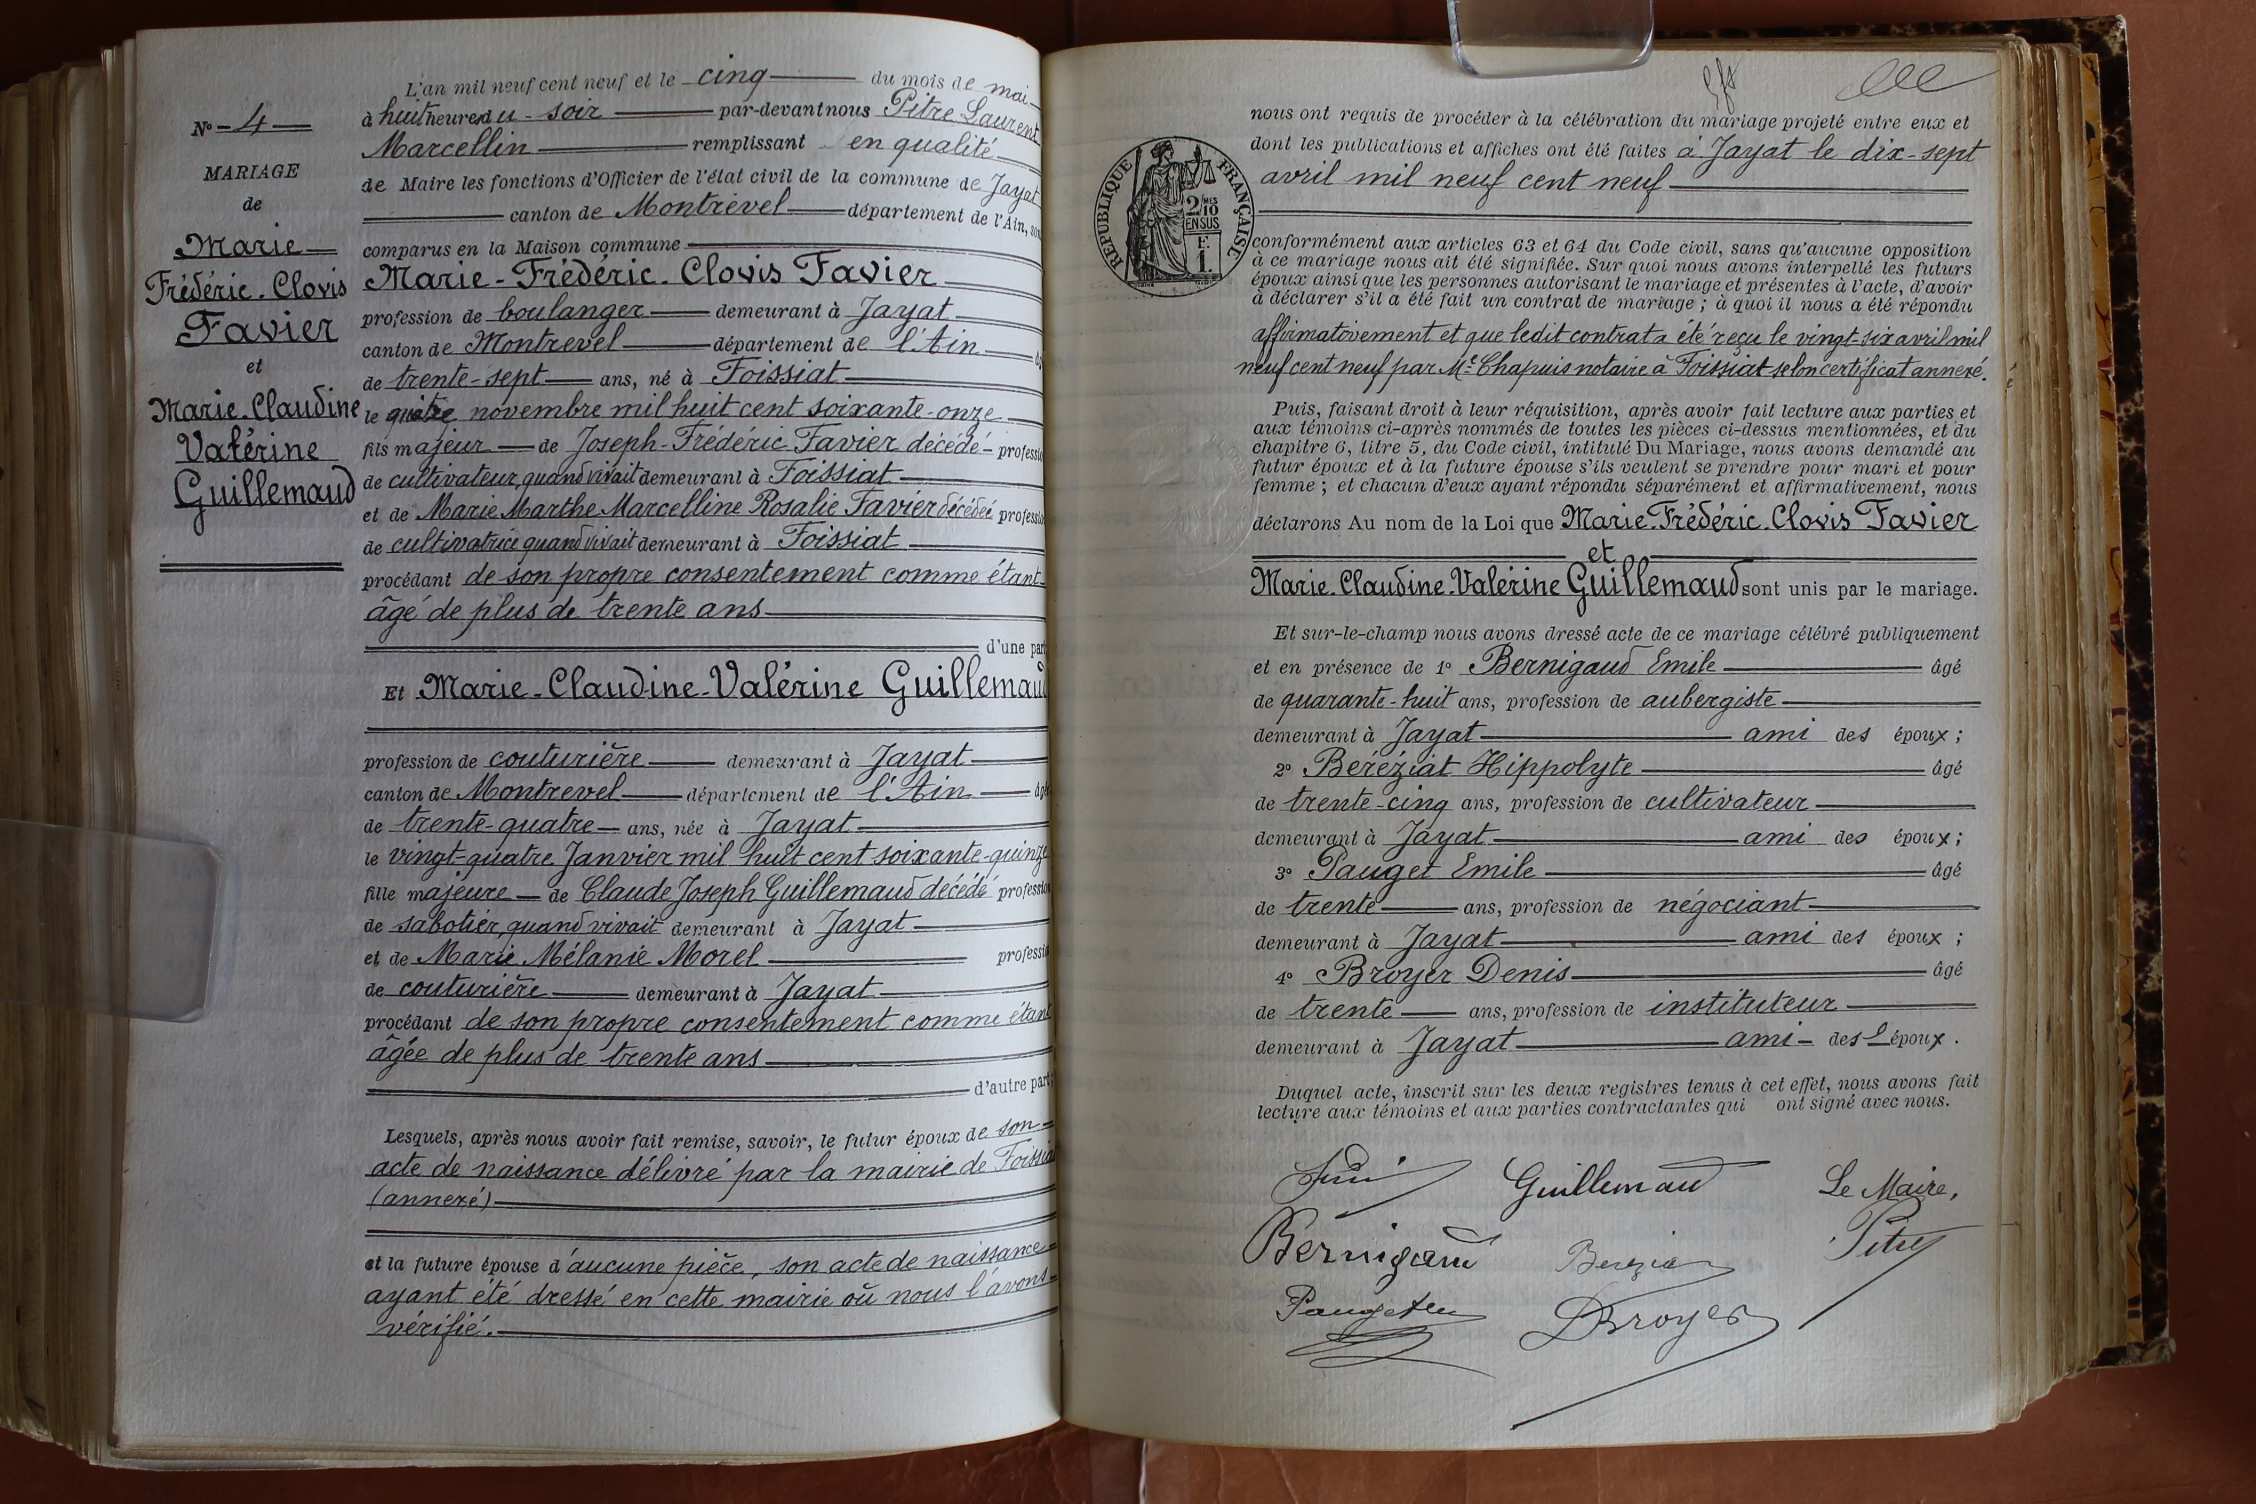 N° - 4 -
MARIAGE
de
Marie
Frédéric. Clovis
Favier
et
Marie. Claudine
Valérine
Guillemaud
L'an mil neuf cent neuf et le cinq du mois de mai
à huit heures du soir par-devant nous Pitre Laurent
Marcellin remplissant en qualité
de Maire les fonctions d'Officier de l'état civil de la commune de Jayat
canton de Montrevel département de l'Ain, sont
comparus en la Maison commune
Marie-Frédéric. Clovis Favier
profession de boulanger demeurant à Jayat
canton de Montrevel département de l'Ain
de trente-sept ans, né à Foissiat
le quatre novembre mil huit cent soixante-onze
fils majeur de Joseph-Frédéric Favier décédé - profession
de cultivateur, quand vivait demeurant à Foissiat
et de Marie Marthe Marcelline Rosalie Favier décédée profession
de cultivatrice quand vivait demeurant à Foissiat
procédant de son propre consentement comme étant
âgé de plus de trente ans
d'une part
Et Marie-Claudine-Valérine Guillemaud
profession de couturière demeurant à Jayat
canton de Montrevel département de l'Ain âgée
de trente-quatre ans, née à Jayat
le vingt-quatre Janvier mil huit cent soixante-quinze
fille majeure de Claude Joseph Guillemaud décédé profession
de sabotier, quand vivait demeurant à Jayat
et de Marie Mélanie Morel profession
de couturière demeurant à Jayat
procédant de son propre consentement comme étant
âgée de plus de trente ans
d'autre part;
Lesquels, après nous avoir fait remise, savoir, le futur époux de son
acte de naissance délivré par la mairie de Foissiat
(annexé)
et la future épouse d'aucune pièce, son acte de naissance
ayant été dressé en cette mairie où nous l'avons
vérifié.
nous ont requis de procéder à la célébration du mariage projeté entre eux et
dont les publications et affiches ont été faites à Jayat le dix-sept
avril mil neuf cent neuf
RÉPUBLIQUE FRANÇAISE
2/10 MES
EN SUS
F.
1.
conformément aux articles 63 et 64 du Code civil, sans qu'aucune opposition
à ce mariage nous ait été signifiée. Sur quoi nous avons interpellé les futurs
époux ainsi que les personnes autorisant le mariage et présentes à l'acte, d'avoir
à déclarer s'il a été fait un contrat de mariage ; à quoi il nous a été répondu
affirmativement et que ledit contrat a été reçu le vingt-six avril mil
neuf cent neuf par Me Chapuis notaire à Foissiat selon certificat annexé.
Puis, faisant droit à leur réquisition, après avoir fait lecture aux parties et
aux témoins ci-après nommés de toutes les pièces ci-dessus mentionnées, et du
chapitre 6, titre 5, du Code civil, intitulé Du Mariage, nous avons demandé au
futur époux et à la future épouse s'ils veulent se prendre pour mari et pour
femme ; et chacun d'eux ayant répondu séparément et affirmativement, nous
déclarons Au nom de la Loi que Marie-Frédéric. Clovis Favier
et
Marie-Claudine-Valérine Guillemaud sont unis par le mariage.
Et sur-le-champ nous avons dressé acte de ce mariage célébré publiquement
et en présence de 1° Bernigaud Emile âgé
de quarante-huit ans, profession de aubergiste
demeurant à Jayat ami des époux ;
2° Béréziat Hippolyte âgé
de trente-cinq ans, profession de cultivateur
demeurant à Jayat ami des époux ;
3° Pauget Emile âgé
de trente ans, profession de négociant
demeurant à Jayat ami des époux ;
4° Broyer Denis âgé
de trente ans, profession de instituteur
demeurant à Jayat ami - des époux .
Duquel acte, inscrit sur les deux registres tenus à cet effet, nous avons fait
lecture aux témoins et aux parties contractantes qui ont signé avec nous.
Guillemaud Le Maire,
Bernigaud Pitre
Broyer